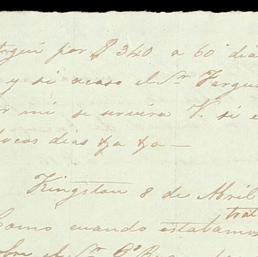 por $ 340 a 60 dia
y si acaso el Sr. Fargu
mi se servira V. si e
ocos dias &a &a —
Kingston 8 de Abril
Como cuando estabamos
trat
el Sr.